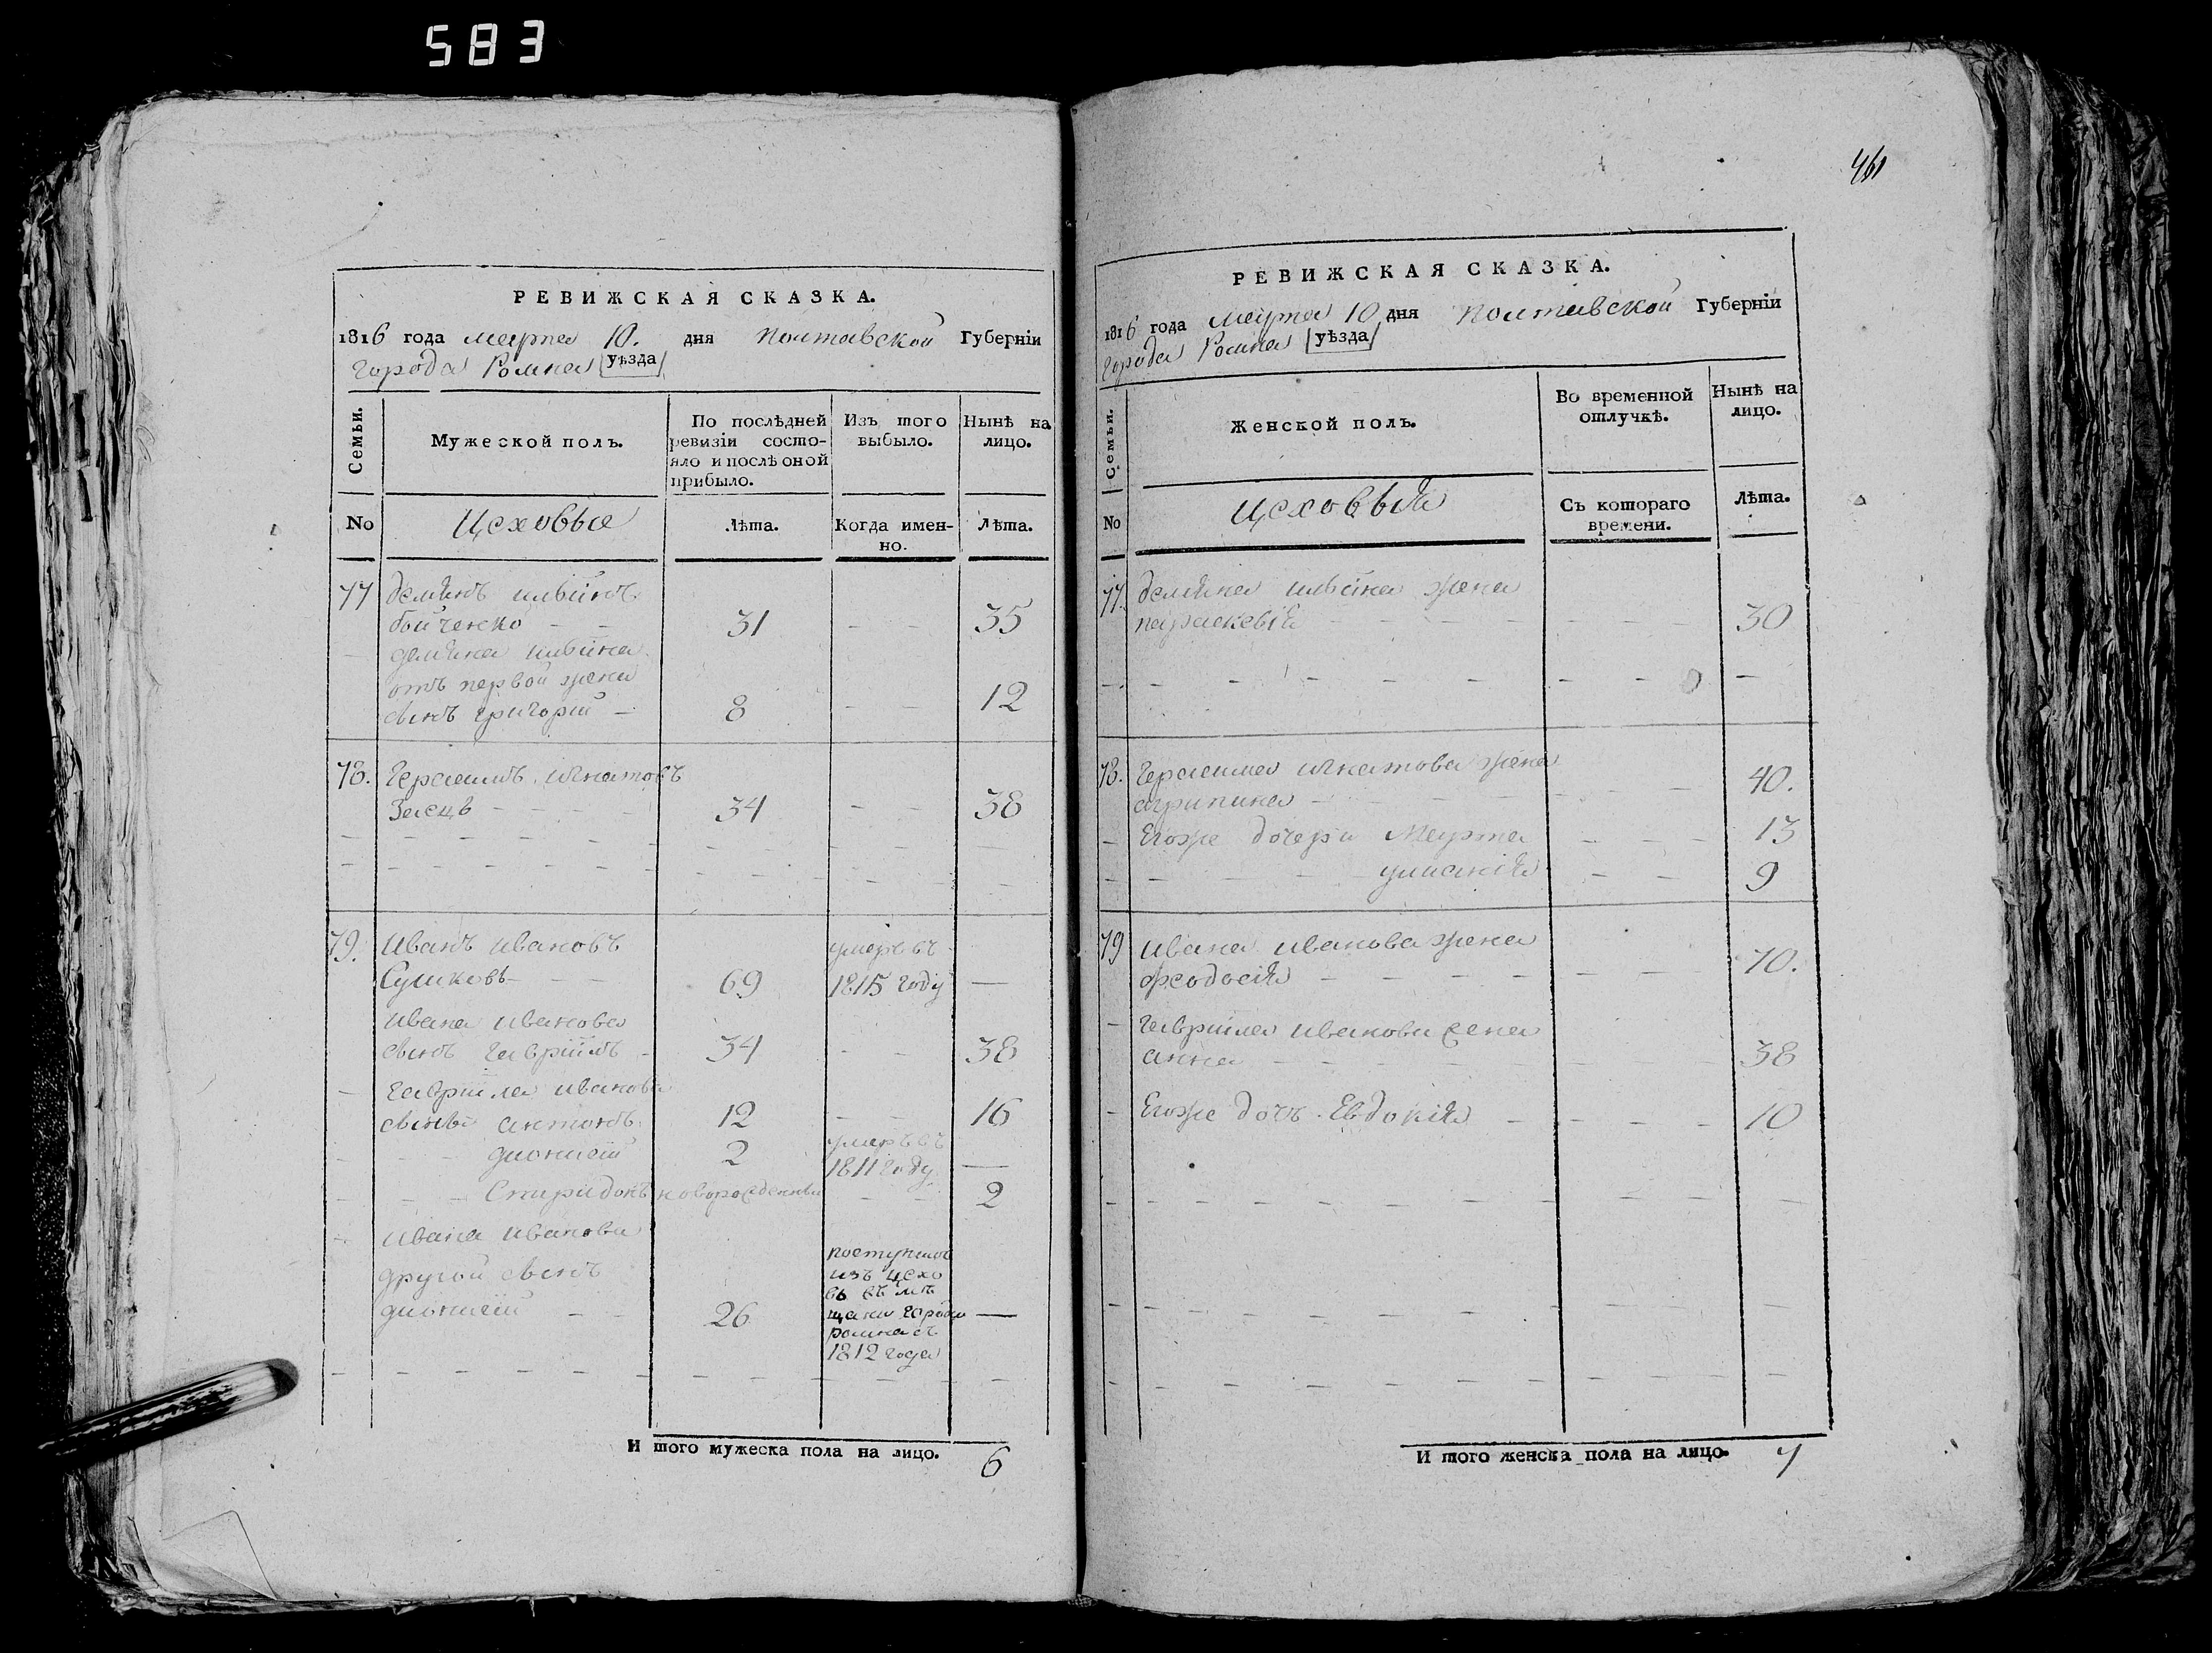 583
РЕВИЖСКАЯ СКАЗКА.
1816 года марта 10. дня Полтавской Губерніи
города Ромна уѣзда
Семьи.
Мужеской полъ.
По послѣдней ревизіи состояло и послѣ оной прибыло.
Изъ того выбыло.
Нынѣ на лицо.
No
Цеховые
Лѣта.
Когда именно.
Лѣта.
77 Демянъ
бойченко — — 31 — — 35
отъ первой жены
сынъ григорій — 8 — — 12
78. Герасимъ игнатовъ
Заецъ — — — 34 — — 38
79. Иванъ ивановъ умеръ въ
Сушковъ — — 69 1815 году —
ивана иванова
сынъ гавріилъ — 34 — — 38
— гавріила иванова
сыны антонъ 12 — — 16
умеръ въ
— — — дионисій 2 1811 году —
— — — Спиридонъ новорожденный — — 2
— ивана иванова
другой сынъ
дионисій — — 26 —
поступилъ
изъ цехо
въ въ мѣ
щане города
ромна съ
1812 года
И того мужеска пола на лицо. 6
461
РЕВИЖСКАЯ СКАЗКА.
1816 года Марта 10 дня Полтавской Губерніи
города Ромна уѣзда
Семьи.
Женской полъ.
Во временной отлучкѣ.
Нынѣ на лицо.
No
Цеховыя
Съ котораго времени.
Лѣта.
77. демяна жена
параскевія — — — — 30
78. Герасима игнатова жена
агрипина — — — 40.
— Егоже дочери Марта — — — 13
— — — — — — 9
79 ивана иванова жена
феодосія — — — 70.
— гавріила иванова жена
анна — — — 38
— Егоже дочь Евдокія — — — — 10
И того женска пола на лицо. 7